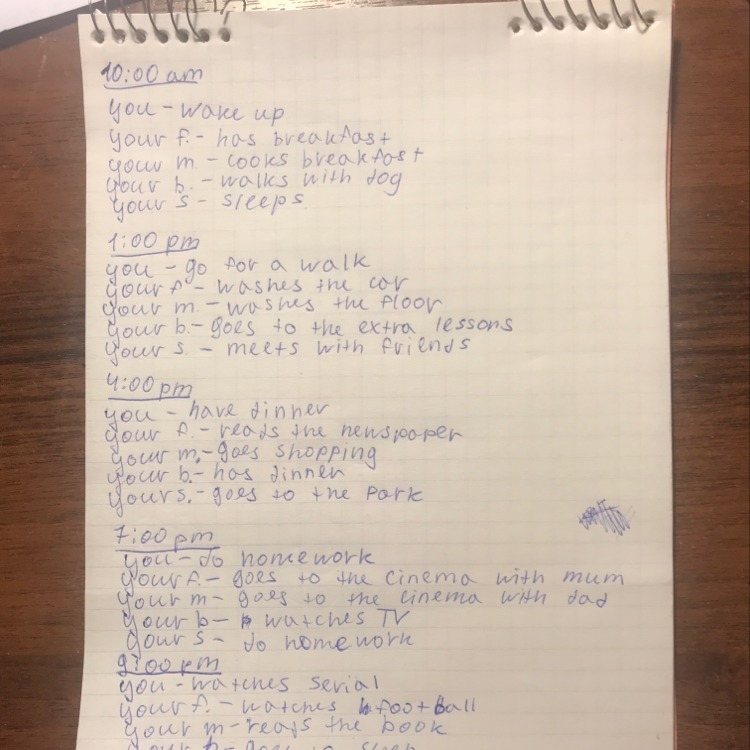 10:00 am
you - wake up
your f. - has breakfast
your m. - cooks breakfast
your b. - walks with dog
your s - sleeps
1:00 pm
you - go for a walk
your f - washes the car
your m. - washes the floor
your b. - goes to the extra lessons
your s. - meets with friends
4:00 pm
you - have dinner
your f. - reads the newspaper
your m. - goes shopping
your b. - has dinner
your s. - goes to the park
7:00 pm
you - do homework
your f. - goes to the cinema with mum
your m - goes to the cinema with dad
your b - watches TV
your s - do homework
9:00 pm
you - watches serial
your f. - watches football
your m - reads the book
your b - goes to sleep